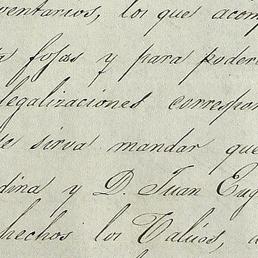 ventarios, los que acom
fojas y para poder
legalizaciones correspon
se sirva mandar que
dina y D. Juan Eug
hechos los Valúos,